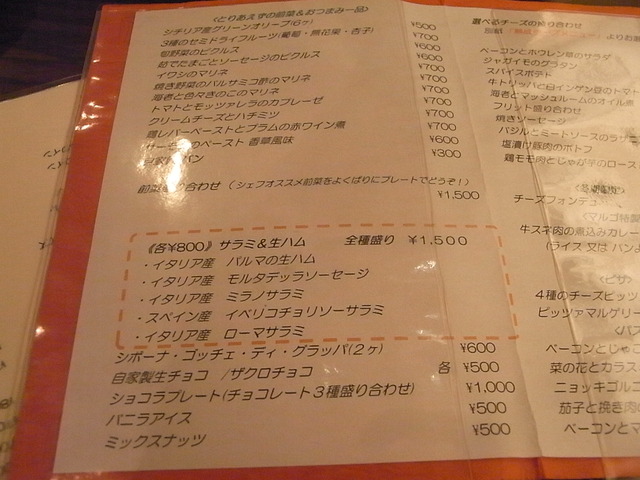 <とりあえずの前菜&おつまみ一品>
シチリア産グリーンオリーブ(6ヶ) ¥500
3種のセミドライフルーツ(葡萄・無花果・杏子) ¥700
旬野菜のピクルス ¥600
茹でたまごとソーセージのピクルス ¥600
イワシのマリネ ¥700
焼き野菜のバルサミコ酢のマリネ ¥700
海老と色々きのこのマリネ ¥700
トマトとモッツァレラのカプレーゼ ¥700
クリームチーズとハチミツ ¥700
鶏レバーペーストとプラムの赤ワイン煮 ¥700
のペースト 香草風味 ¥600
パン ¥300
前菜盛り合わせ (シェフオススメ前菜をよくばりにプレートでどうぞ!)
¥1,500
《各¥800》 サラミ&生ハム 全種盛り ¥1,500
・イタリア産 パルマの生ハム
・イタリア産 モルタデッラソーセージ
・イタリア産 ミラノサラミ
・スペイン産 イベリコチョリソーサラミ
・イタリア産 ローマサラミ
シボーナ・ゴッチェ・ディ・グラッパ(2ヶ) ¥600
自家製生チョコ /ザクロチョコ 各 ¥500
ショコラプレート(チョコレート3種盛り合わせ) ¥1,000
バニラアイス ¥500
ミックスナッツ ¥500
選べるチーズの盛り合わせ
よりお選
ベーコンとホウレン草のサラダ
ジャガイモのグラタン
スパイスポテト
牛トリッパと白インゲン豆のトマト
海老とマッシュルームのオイル煮
フリット盛り合わせ
焼きソーセージ
バジルとミートソースのラザ
塩漬け豚肉のポトフ
鶏モモ肉とじゃが芋のロース
チーズフォンデュ
<マルゴ特製
牛スネ肉の煮込みカレー
(ライス 又は パン
<ピザ
4種のチーズピッツ
ピッツァマルゲリー
<パ
ベーコンとじゃこ
菜の花とカラス
ニョッキゴルゴ
茄子と挽き肉の
ベーコンとマ